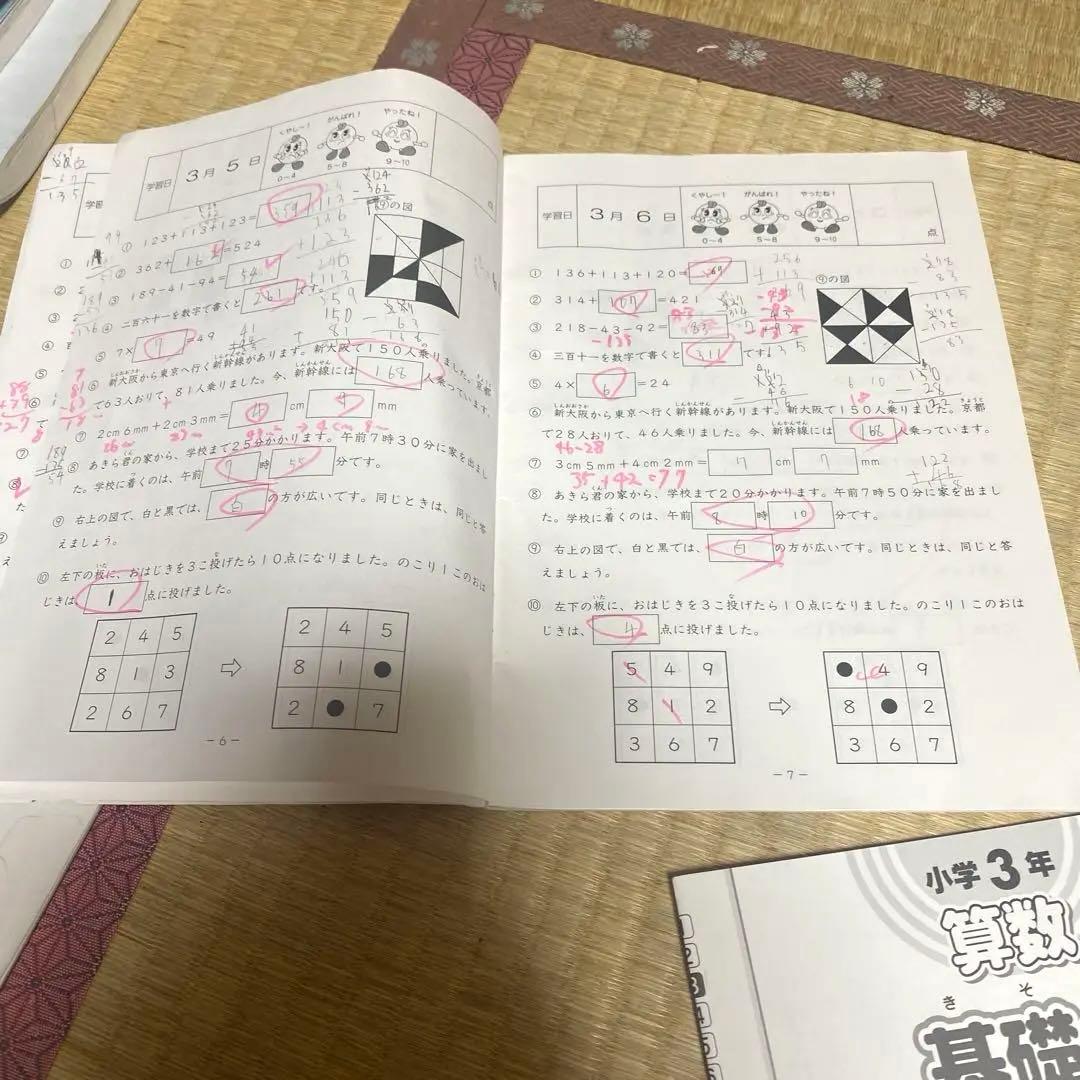 学習日 3月5日
くやし〜! がんばれ! やったね!
0〜4 5〜8 9〜10
点
① 123+113+123= 359
⑨の図
② 362+ 162 =524
③ 189-41-94= 54
④ 二百六十一を数字で書くと 261 です。
⑤ 7× 7 =49
⑥ 新大阪から東京へ行く新幹線があります。新大阪で150人乗りました。京都
で63人おりて、81人乗りました。今、新幹線には 168 人乗っています。
⑦ 2cm6mm+2cm3mm= 4 cm 9 mm
⑧ あきら君の家から、学校まで25分かかります。午前7時30分に家を出まし
た。学校に着くのは、午前 7 時 55 分です。
⑨ 右上の図で、白と黒では、 白 の方が広いです。同じときは、同じと答
えましょう。
⑩ 左下の板に、おはじきを3こ投げたら10点になりました。のこり1このおは
じきは、 1 点に投げました。
2 4 5
8 1 3
2 6 7
⇨
2 4 5
8 1 ●
2 ● 7
-6-
学習日 3月6日
くやし〜! がんばれ! やったね!
0〜4 5〜8 9〜10
点
① 136+113+120= 369
⑨の図
② 314+ 107 =421
③ 218-43-92= 83
④ 三百十一を数字で書くと 311 です。
⑤ 4× 6 =24
⑥ 新大阪から東京へ行く新幹線があります。新大阪で150人乗りました。京都
で28人おりて、46人乗りました。今、新幹線には 168 人乗っています。
46-28
⑦ 3cm5mm+4cm2mm= 7 cm 7 mm
35+42=77
⑧ あきら君の家から、学校まで20分かかります。午前7時50分に家を出まし
た。学校に着くのは、午前 8 時 10 分です。
⑨ 右上の図で、白と黒では、 白 の方が広いです。同じときは、同じと答
えましょう。
⑩ 左下の板に、おはじきを3こ投げたら10点になりました。のこり1このおは
じきは、 4 点に投げました。
5 4 9
8 1 2
3 6 7
⇨
● 4 9
8 ● 2
3 6 7
-7-
小学3年
算数
きそ
基礎